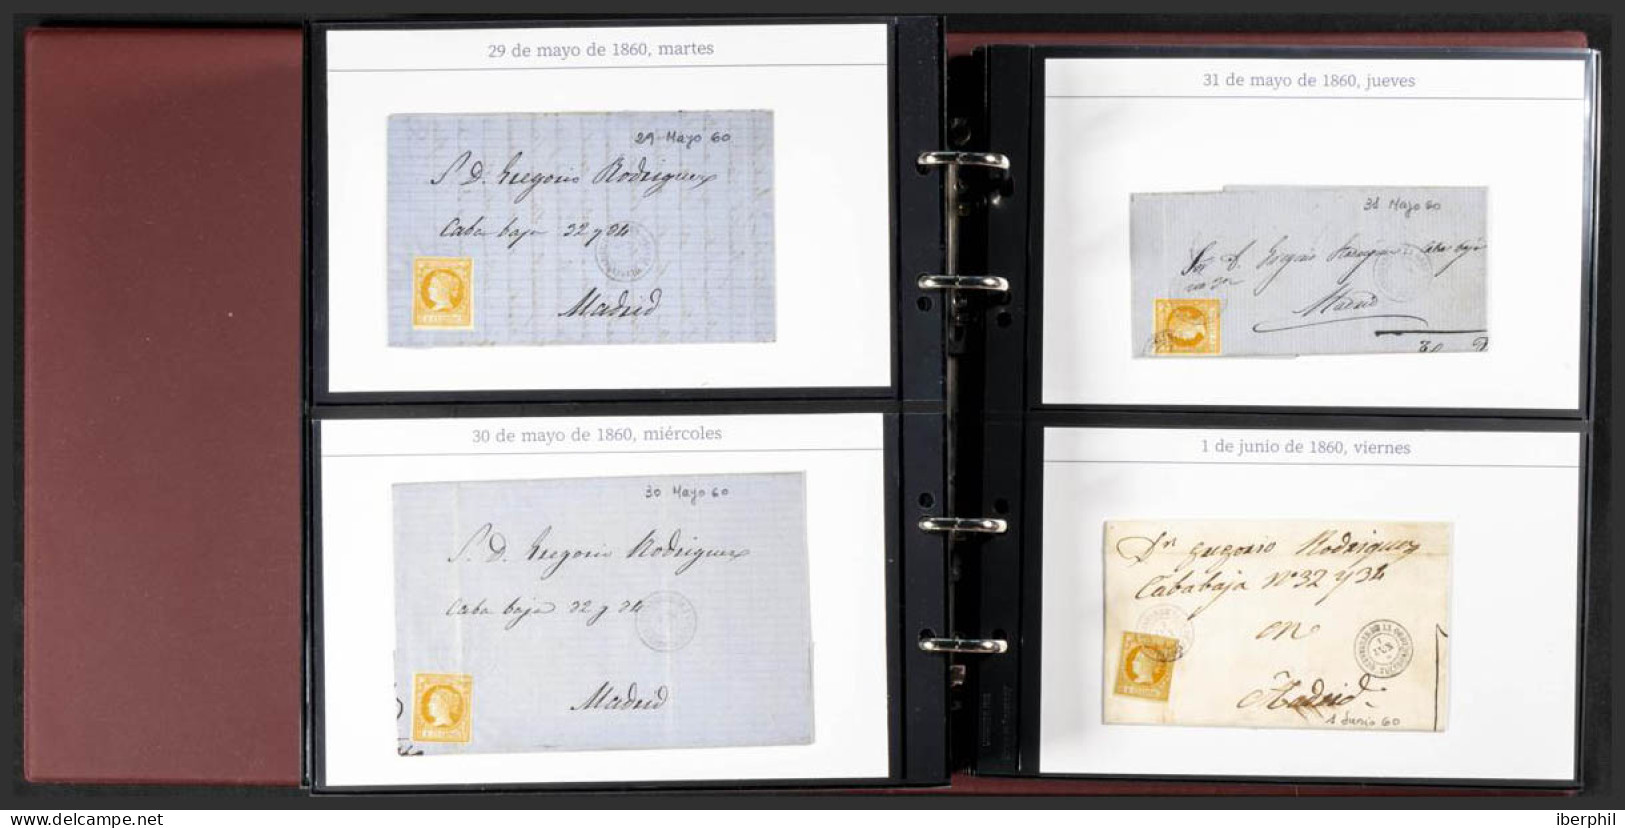 29 de mayo de 1860, martes
29 Mayo 60
S. D. Gregorio Rodriguez
Caba baja 32 y 34
Madrid
30 de mayo de 1860, miércoles
30 Mayo 60
S. D. Gregorio Rodriguez
Caba baja 32 y 34
Madrid
31 de mayo de 1860, jueves
31 Mayo 60
Caba baja
Madrid
1 de junio de 1860, viernes
Dn Gregorio Rodriguez
Cababaja Nº 32 y 34
en
Madrid
1 Junio 60
delcampe.net
iberphil